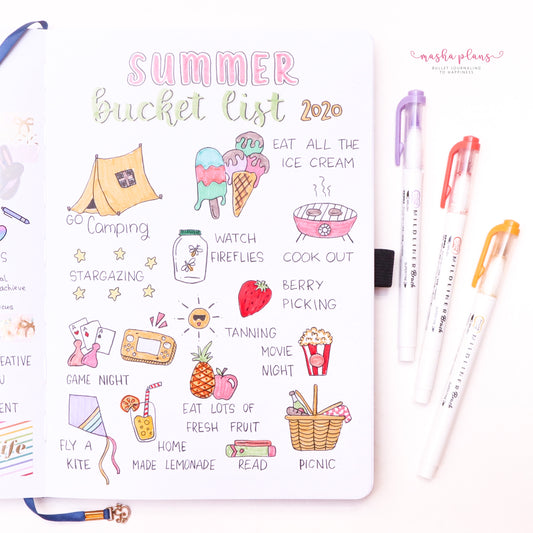 SUMMER
bucket list 2020
masha plans
BULLET JOURNALING
TO HAPPINESS
EAT ALL THE
ICE CREAM
GO Camping
WATCH
FIREFLIES
COOK OUT
STARGAZING
BERRY
PICKING
TANNING
MOVIE
NIGHT
GAME NIGHT
EAT LOTS OF
FRESH FRUIT
FLY A
KITE
HOME
MADE LEMONADE
READ
PICNIC
achieve
EATIVE
ENT
life
MILDLINER Brush
MILDLINER Brush
MILDLINER Brush